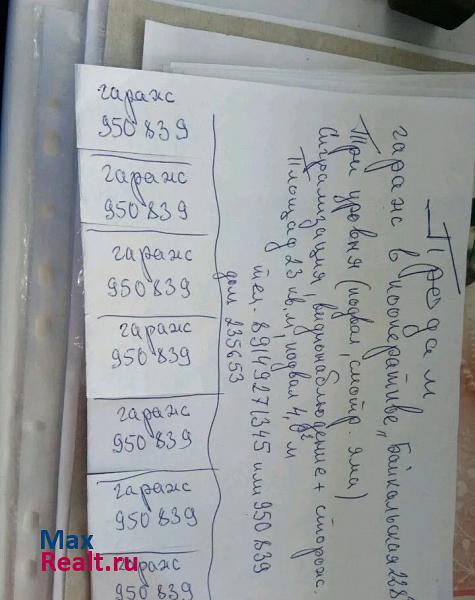 Продам
гараж в кооперативе "Байкальская
Три уровня (подвал, смотр. яма)
Сигнализация, видионаблюдение + сторож.
Площад 23 кв.м, подвал 4,8² м
тел. 89149271345 или 950839
дом 235653
гараж
950839
гараж
950839
гараж
950839
гараж
950839
гараж
950839
гараж
950839
гараж
950839
Max
Realt.ru